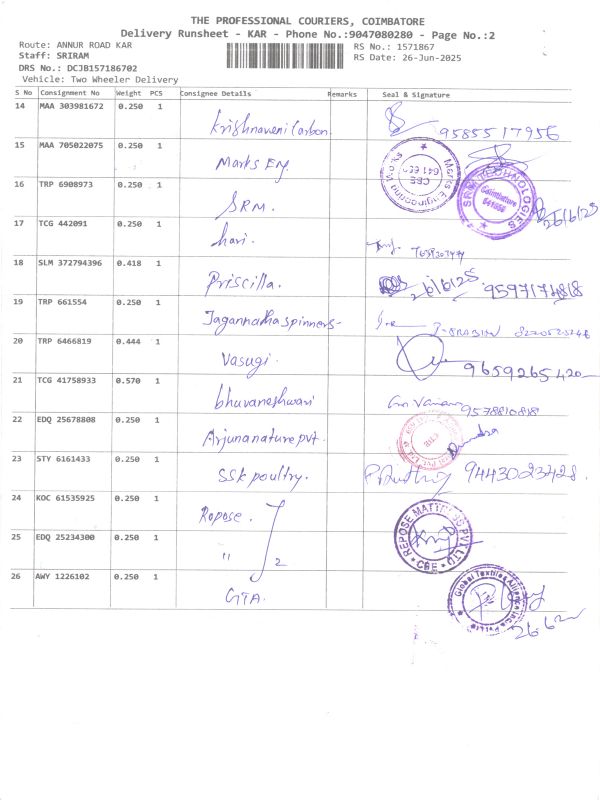 THE PROFESSIONAL COURIERS, COIMBATORE
Delivery Runsheet - KAR - Phone No.:9047080280 - Page No.:2
Route: ANNUR ROAD KAR
Staff: SRIRAM
DRS No.: DCJB157186702
Vehicle: Two Wheeler Delivery
RS No.: 1571867
RS Date: 26-Jun-2025
S No Consignment No Weight PCS Consignee Details Remarks Seal & Signature
14 MAA 303981672 0.250 1 Krishnaveni Carbon. 9585517956
15 MAA 705022075 0.250 1 Marks Eng. Marks Engineering Works CBE 641 659
16 TRP 6908973 0.250 1 SRM. SRM TECHNOLOGIES Coimbatore 26/6/25
17 TCG 442091 0.250 1 hari.
18 SLM 372794396 0.418 1 Priscilla. 26/6/25 9597174818
19 TRP 661554 0.250 1 Jagannatha spinners-
20 TRP 6466819 0.444 1 Vasugi. 9659265420
21 TCG 41758933 0.570 1 bhuvaneshwari 9578810818
22 EDQ 25678808 0.250 1 Arjuna nature pvt.
23 STY 6161433 0.250 1 SSK poultry. 9443023428.
24 KOC 61535925 0.250 1 Repose.
25 EDQ 25234300 0.250 1 " 2 REPOSE MATTRESS PVT LTD CBE
26 AWY 1226102 0.250 1 GTA. Global Textiles Alliance India Pvt Ltd 26.6